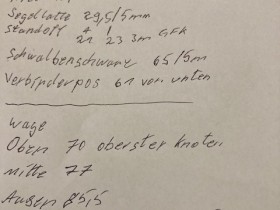 Segellatte 29,5/5mm
standoff 21 23 3m GFK
Schwalbenschwanz 65/5m
Verbinderpos 61 von unten
Waage
Oben 70 oberster knoten
mitte 77
Aussen 85,5